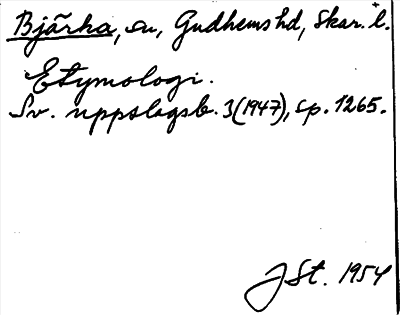 Bjärka, sn, Gudhems hd, Skar. l.
Etymologi.
Sv. uppslagsb. 3(1947), sp. 1265.
JSt. 1954